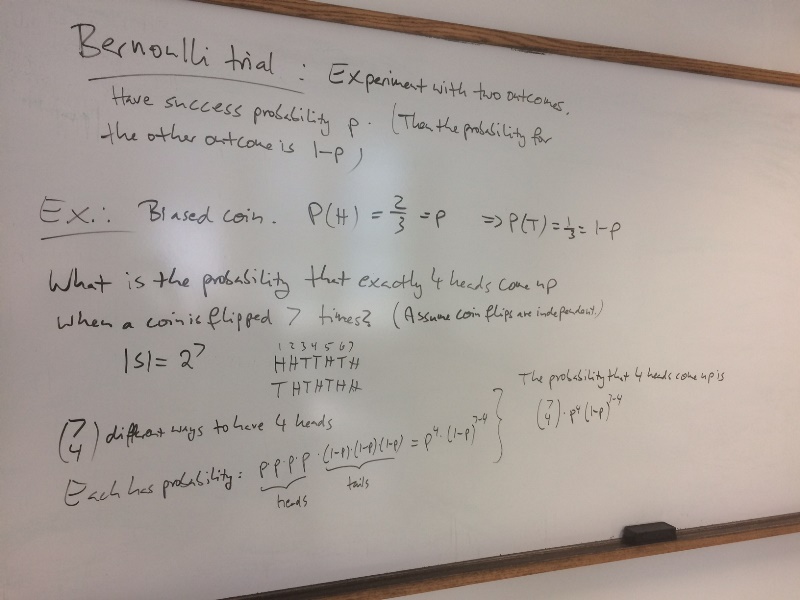 Bernoulli trial : Experiment with two outcomes.
Have success probability p. (Then the probability for
the other outcome is 1-p)
Ex.: Biased coin. P(H) = 2/3 = p ⇒ P(T) = 1/3 = 1-p
What is the probability that exactly 4 heads come up
when a coin is flipped 7 times? (Assume coin flips are independent.)
|S| = 2^7
1 2 3 4 5 6 7
HHTTHTH
THTHTHH
(7 4) different ways to have 4 heads
Each has probability: p·p·p·p·(1-p)·(1-p)·(1-p) = p^4·(1-p)^7-4
heads tails
} The probability that 4 heads come up is
(7 4)·p^4(1-p)^7-4